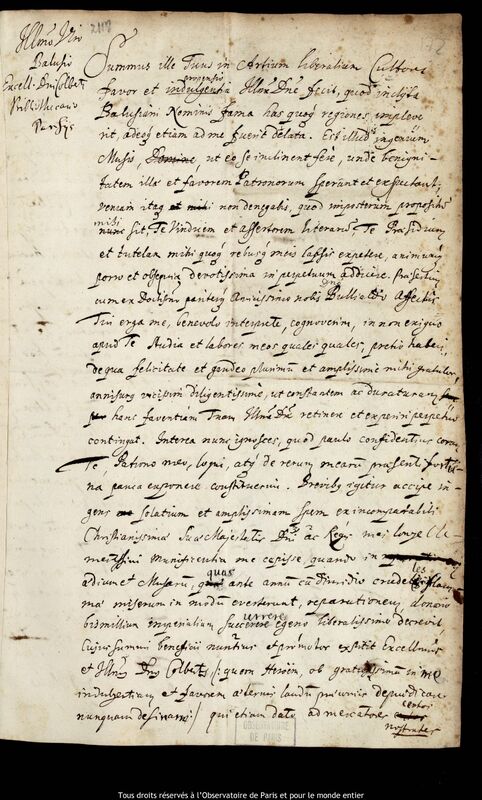 Illmo Viro
Balusio
Excell: Dni Colberti
Bibliothecario
Parisijs
2117
172
Summus ille Tuus in Artium liberalium Cultores
favor et indulgentia propensio Illmr Dne fecit, quod inclyta
Balusiani Nominis fama has quoq regiones impleve
rit, adeoq etiam ad me fuerit delata. Est illud ingenium
Musis, ut eo se inclinent fere, unde benigni-
tatem illae et favorem Patronorum sperant et expectant,
veniam itaq non denegabis, quod imposterum propositu
mihi sit, Te Vindicem et assertorem literarum Te Praesidium
et tutelam mihi quoq rebusq meis lapsis expetere, animumq
porro et obsequia devotissima in perpetuum addicere. Praesertim
cum ex Doctissimo pariterq Amicissimo nobis Bullialdo affectus
Tui erga me, benevolo interprete, cognoverim, in non exiguo
apud Te studia et labores meos quales quales, pretio haberi,
de qua felicitate et gaudeo plurimum et amplissime mihi gratulor,
annisurq vicissim diligentissime, ut constantem ac duraturam
hanc faventiam Tuam Illme Dne retinere et experiri perpetuo
contingat. Interea nunc ignosces, quod paulo confidentius coram
Te, Patrono meo, loqui, atq de rerum mearum praesenti fortu-
na pauca exponere constituerim. Brevibq igitur accipe in-
gens solatium et amplissimam spem ex incomparabili
Christianissimae Suae Majestatis Dni ac Regis mei longe Cle-
mentissimi munificentia me cepisse, quando in
aedium et Musarum, quas ante annum cum dimidio crudeles flam
mae miserum in modum everterunt, reparationem, donario
bis mille imperialium succurrere egeno liberalissime decrevit
Cujus summi beneficij nuntius et promotor extitit Excellmus
et Illmus Dns Colbertus /: quem Heroem, ob gratiosissimam in me
indulgentiam et favorem aeternis laudum praeconijs depraedicare
nunquam desinam :/ qui etiam dato ad mercatores certos
nostrates
OBSERVATOIRE
DE PARIS
Tous droits réservés à l'Observatoire de Paris et pour le monde entier